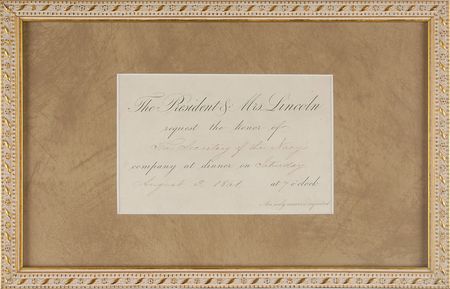 The President & Mrs. Lincoln
request the honor of
The Secretary of the Navy
company at dinner on Saturday
August 3, 1861 at 7 o'clock
An early answer is requested